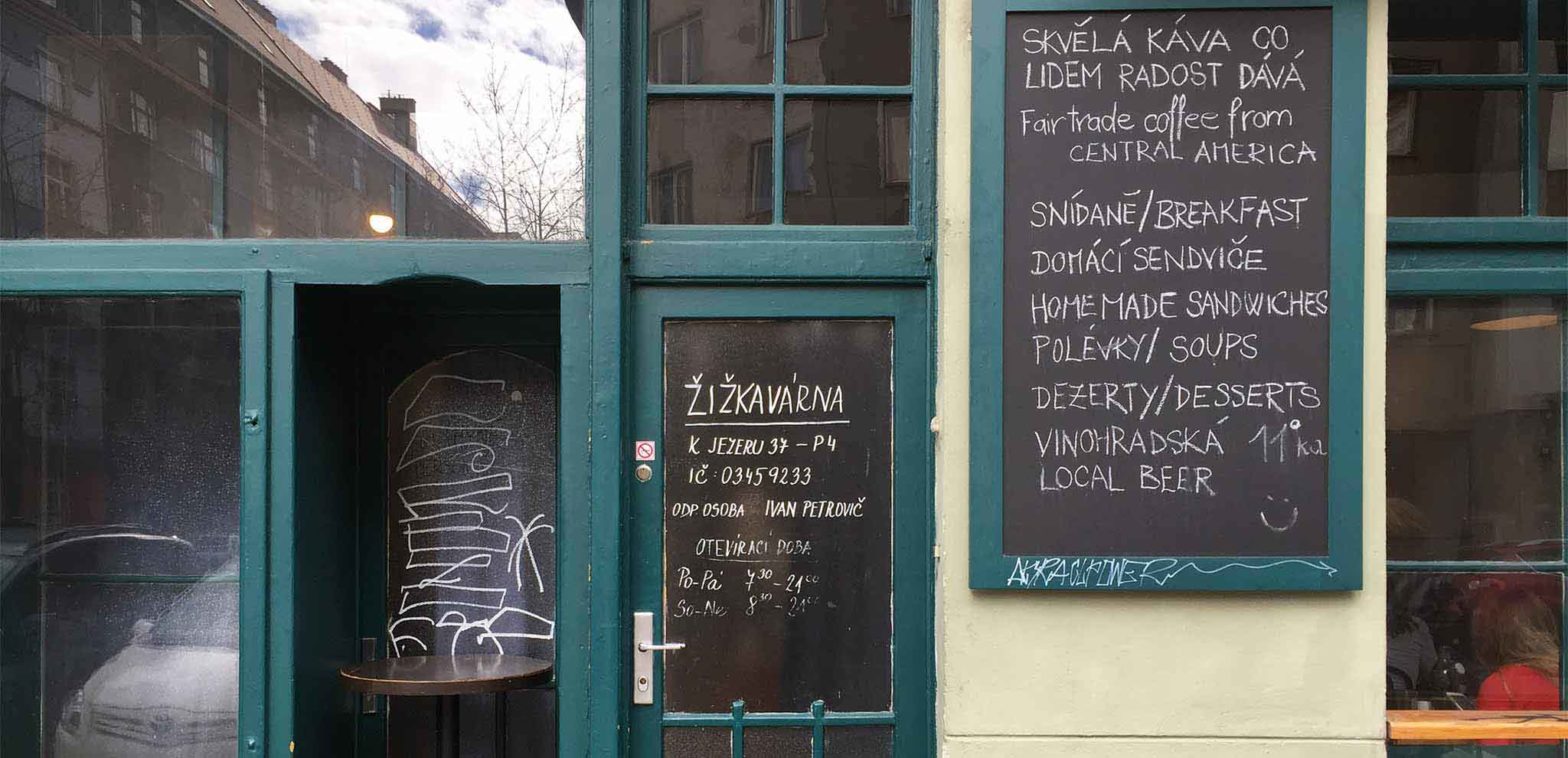 ŽIŽKAVÁRNA
K JEZERU 37 - P4
IČ: 03459233
ODP OSOBA IVAN PETROVIČ
OTEVÍRACÍ DOBA
Po-Pá 7³⁰ - 21⁰⁰
So-Ne 8³⁰ - 21⁰⁰
SKVĚLÁ KÁVA CO
LIDEM RADOST DÁVÁ
Fairtrade coffee from
CENTRAL AMERICA
SNÍDANĚ/BREAKFAST
DOMÁCÍ SENDVIČE
HOMEMADE SANDWICHES
POLÉVKY/ SOUPS
DEZERTY/DESSERTS
VINOHRADSKÁ 11°ka
LOCAL BEER